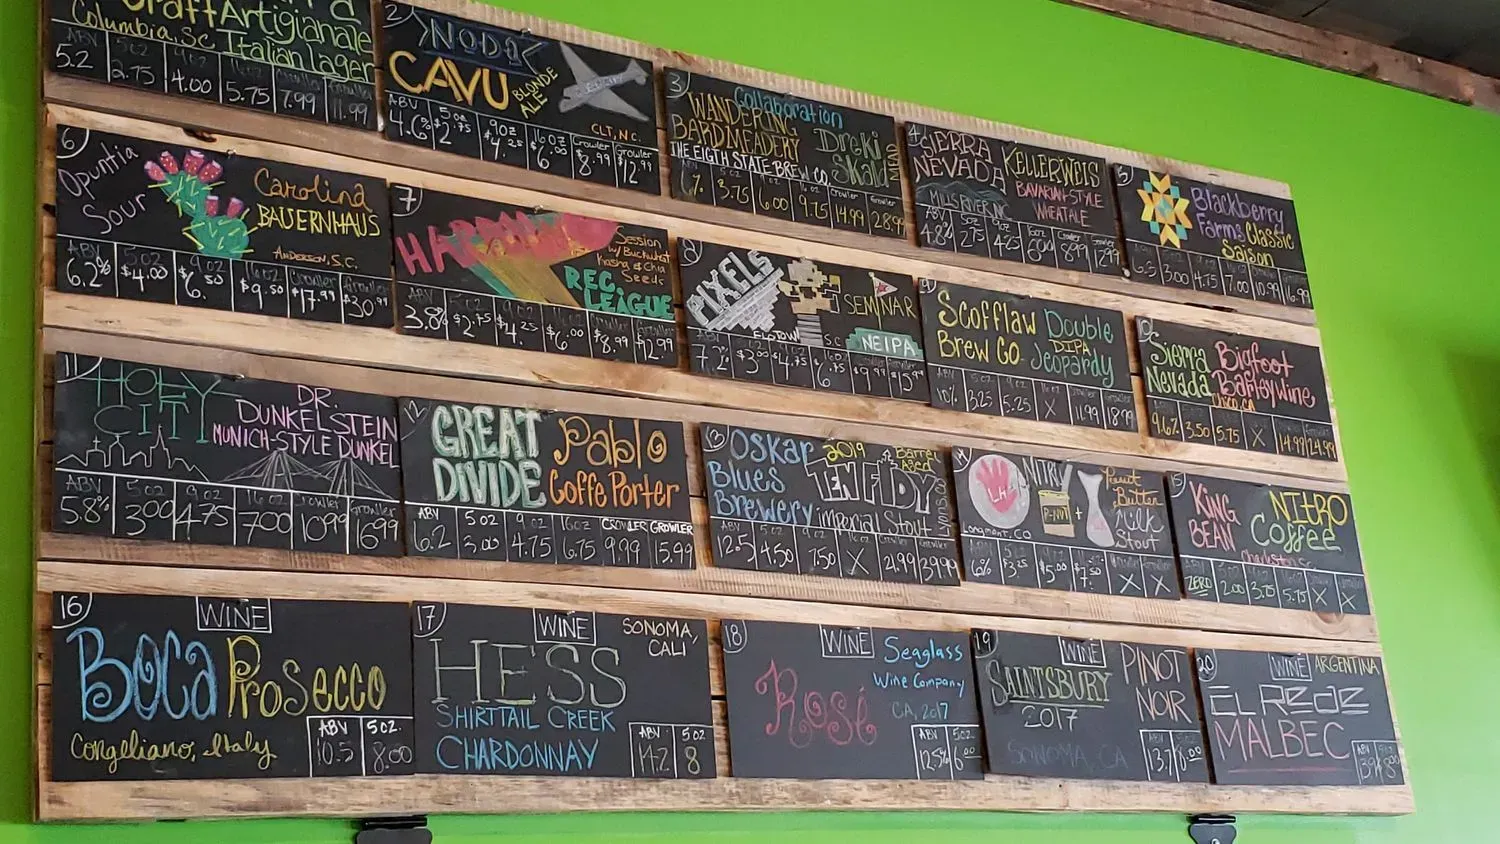 Craft Artigianale
Columbia, SC Italian Lager
ABV 5oz 9oz 16oz Crowler Growler
5.2 2.75 4.00 5.75 7.99 11.99
2
NODA
CAVU
BLONDE
ALE
CLT, N.C.
ABV 5oz 9oz 16oz Crowler Growler
4.6% $2.75 $4.25 $6.00 $8.99 $12.99
3
Collaboration
WANDERING
BARDMEADERY
THE EIGTH STATE BREW CO.
Dreki
Skald
MEAD
3.75 6.00 9.75 14.99 28.99
4
SIERRA
NEVADA
MILLS RIVER NC
KELLERWEIS
BAVARIAN-STYLE
WHEATALE
ABV 5oz 9oz 16oz Crowler Growler
4.8% 2.75 4.25 6.00 8.99 12.99
5
Blackberry
Farms Classic
Saison
6.3 3.00 4.75 7.00 10.99 16.99
6
Opuntia
Sour
Carolina
BAUERNHAUS
ANDERSON, S.C.
ABV 5oz 9oz 16oz Crowler Growler
6.2% $4.00 $6.50 $9.50 $17.99 $30.99
7
Session
w/ Buckwheat
Kasha & Chia
Seeds
REC.
LEAGUE
ABV 5oz 9oz 16oz Crowler Growler
3.8% $2.75 $4.25 $6.00 $8.99 $12.99
8
PIXELS
SEMINAR
SC
NEIPA
7.2% $3.00 $4.75 $6.75 $9.99 $15.99
Scofflaw
Brew Co
Double
DIPA
Jeopardy
ABV 5oz 9oz 16oz Crowler Growler
10% 3.25 5.25 X 11.99 18.99
Sierra
Nevada
Bigfoot
Barleywine
Chico, CA
ABV 5oz 9oz 16oz Crowler Growler
9.6% 3.50 5.75 X 14.99 24.99
11
HOLY
CITY
DR.
DUNKELSTEIN
MUNICH-STYLE DUNKEL
ABV 5oz 9oz 16oz Crowler Growler
5.8% 3.00 4.75 7.00 10.99 16.99
12
GREAT
DIVIDE
Pablo
Coffe Porter
ABV 5oz 9oz 16oz CROWLER GROWLER
6.2 3.00 4.75 6.75 9.99 15.99
13
Oskar
Blues
Brewery
2019
Barrel
Aged
TEN FIDY
imperial Stout
ABV 5oz 9oz 16oz Crowler Growler
12.5 4.50 7.50 X
14
LH
NITRO
P-NUT
+
Peanut
Butter
Milk
Stout
Longmont, CO
ABV 5oz 9oz 16oz Crowler Growler
6% $3.25 $5.00 $7.50 X X
15
KING
BEAN
NITRO
Coffee
Charleston SC
ZERO 2.00 3.75 5.75 X X
16
WINE
Boca Prosecco
Congeliano, Italy
ABV 5oz
10.5 8.00
17
WINE
SONOMA,
CALI
HESS
SHIRTTAIL CREEK
CHARDONNAY
ABV 5oz
14.2 8
18
WINE
Rosé
Seaglass
Wine Company
CA, 2017
ABV 5oz.
12.5% 6.00
19
WINE
SAINTSBURY
2017
PINOT
NOIR
SONOMA, CA
ABV 5oz
13.7 8.00
20
WINE
ARGENTINA
EL REDE
MALBEC
ABV 5oz